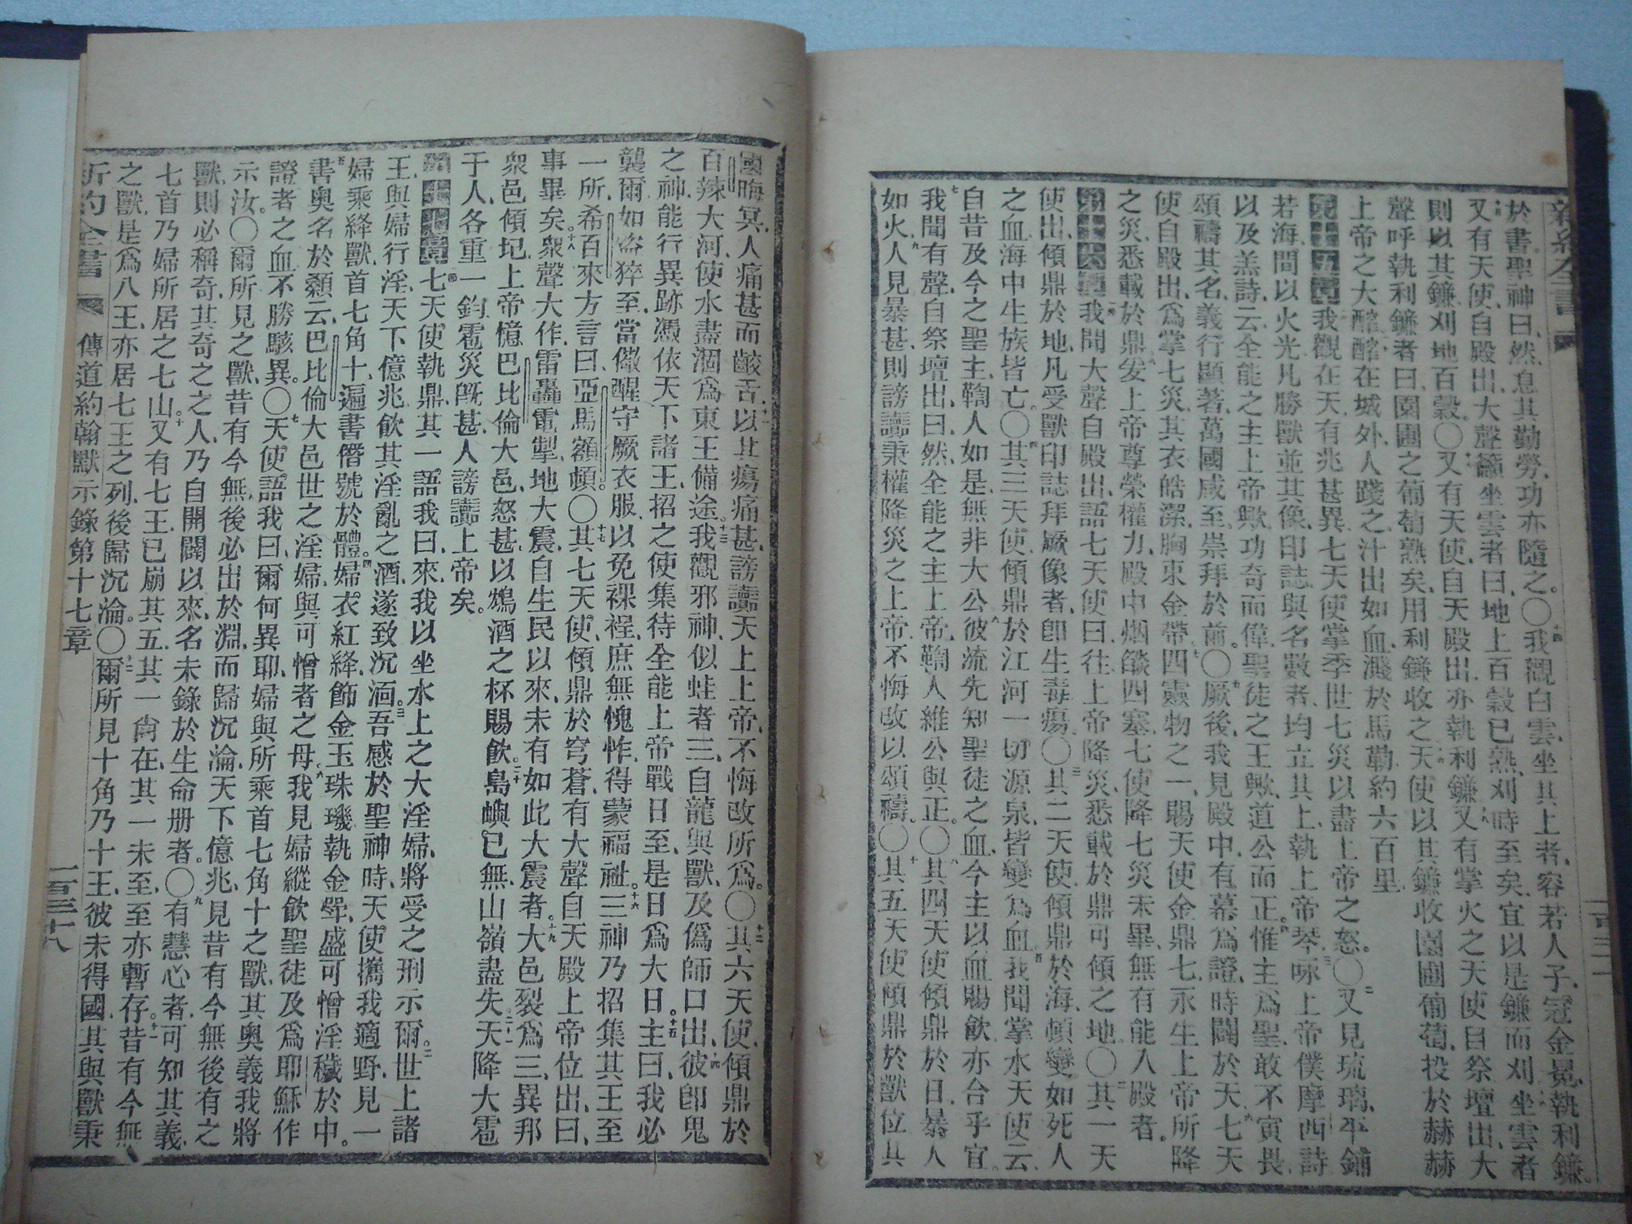 於書聖神曰然息其勤勞功亦隨之〇十四我觀白雲坐其上者容若人子冠金冕執利鐮
十五又有天使自殿出大聲籲坐雲者曰地上百穀已熟刈時至矣宜以是鐮而刈坐雲者
則以其鐮刈地百穀〇又有天使自天殿出亦執利鐮又有掌火之天使自祭壇出大
聲呼執利鐮者曰園圃之葡萄熟矣用利鐮收之天使以其鐮收園圃葡萄投於赫赫
上帝之大醡醡在城外人踐之汁出如血濺於馬勒約六百里
第十五章我觀在天有兆甚異七天使掌季世七災以盡上帝之怒〇二又見琉璃平鋪
若海間以火光凡勝獸並其像印誌與名數者均立其上執上帝琴三咏上帝僕摩西詩
以及羔詩云全能之主上帝歟功奇而偉聖徒之王歟道公而正四惟主為聖敢不寅畏
頌禱其名義行顯著萬國咸至崇拜於前〇五厥後我見殿中有幕為證時闢於天六七天
使自殿出為掌七災其衣皓潔胸束金帶四靈物之一賜天使金鼎七永生上帝所降
之災悉載於鼎八安上帝尊榮權力殿中烟燄四塞七使降七災未畢無有能入殿者
第十六章我聞大聲自殿出語七天使曰往上帝降災悉載於鼎可傾之地〇二其一天
使出傾鼎於地凡受獸印誌拜厥像者卽生毒瘍〇三其二天使傾鼎於海頓變如死人
之血海中生族皆亡〇四其三天使傾鼎於江河一切源泉皆變為血五我聞掌水天使云
自昔及今之聖主鞫人如是無非大公六彼流先知聖徒之血今主以血賜飲亦合乎宜
七我聞有聲自祭壇出曰然全能之主上帝鞫人維公與正〇八其四天使傾鼎於日暴人
如火九人見暴甚則謗讟秉權降災之上帝不悔改以頌禱〇十其五天使傾鼎於獸位其
國晦冥人痛甚而齩舌十一以其瘍痛甚謗讟天上上帝不悔改所為〇十二其六天使傾鼎於
百辣大河使水盡涸為東王備途十三我觀邪神似蛙者三自龍與獸及偽師口出十四彼卽鬼
之神能行異跡憑依天下諸王招之使集待全能上帝戰日至是日為大日十五主曰我必
襲爾如盜猝至當儆醒守厥衣服以免裸裎庶無愧怍得蒙福祉十六三神乃招集其王至
一所希百來方言曰亞馬額頓〇十七其七天使傾鼎於穹蒼有大聲自天殿上帝位出曰
事畢矣十八衆聲大作雷轟電掣地大震自生民以來未有如此大震者十九大邑裂為三異邦
衆邑傾圮上帝憶巴比倫大邑怒甚以鴆酒之杯賜飲二十島嶼已無山嶺盡失二十一天降大雹
于人各重一鈞雹災旣甚人謗讟上帝矣
第十七章七天使執鼎其一語我曰來我以坐水上之大淫婦將受之刑示爾二世上諸
王與婦行淫天下億兆飲其淫亂之酒遂致沉湎三吾感於聖神時天使攜我適野見一
婦乘絳獸首七角十遍書僭號於體四婦衣紅絳飾金玉珠璣執金斝盛可憎淫穢於中
五書奧名於顙云巴比倫大邑世之淫婦與可憎者之母六我見婦縱飲聖徒及為耶穌作
證者之血不勝駭異〇七天使語我曰爾何異耶婦與所乘首七角十之獸其奧義我將
示汝〇八爾所見之獸昔有今無後必出於淵而歸沉淪天下億兆見昔有今無後有之
獸則必稱奇其奇之之人乃自開闢以來名未錄於生命册者〇九有慧心者可知其義
七首乃婦所居之七山十又有七王已崩其五其一尙在其一未至至亦暫存十一昔有今無
之獸是為八王亦居七王之列後歸沉淪〇十二爾所見十角乃十王彼未得國其與獸秉
新約全書 傳道約翰默示錄第十七章 一百三十八